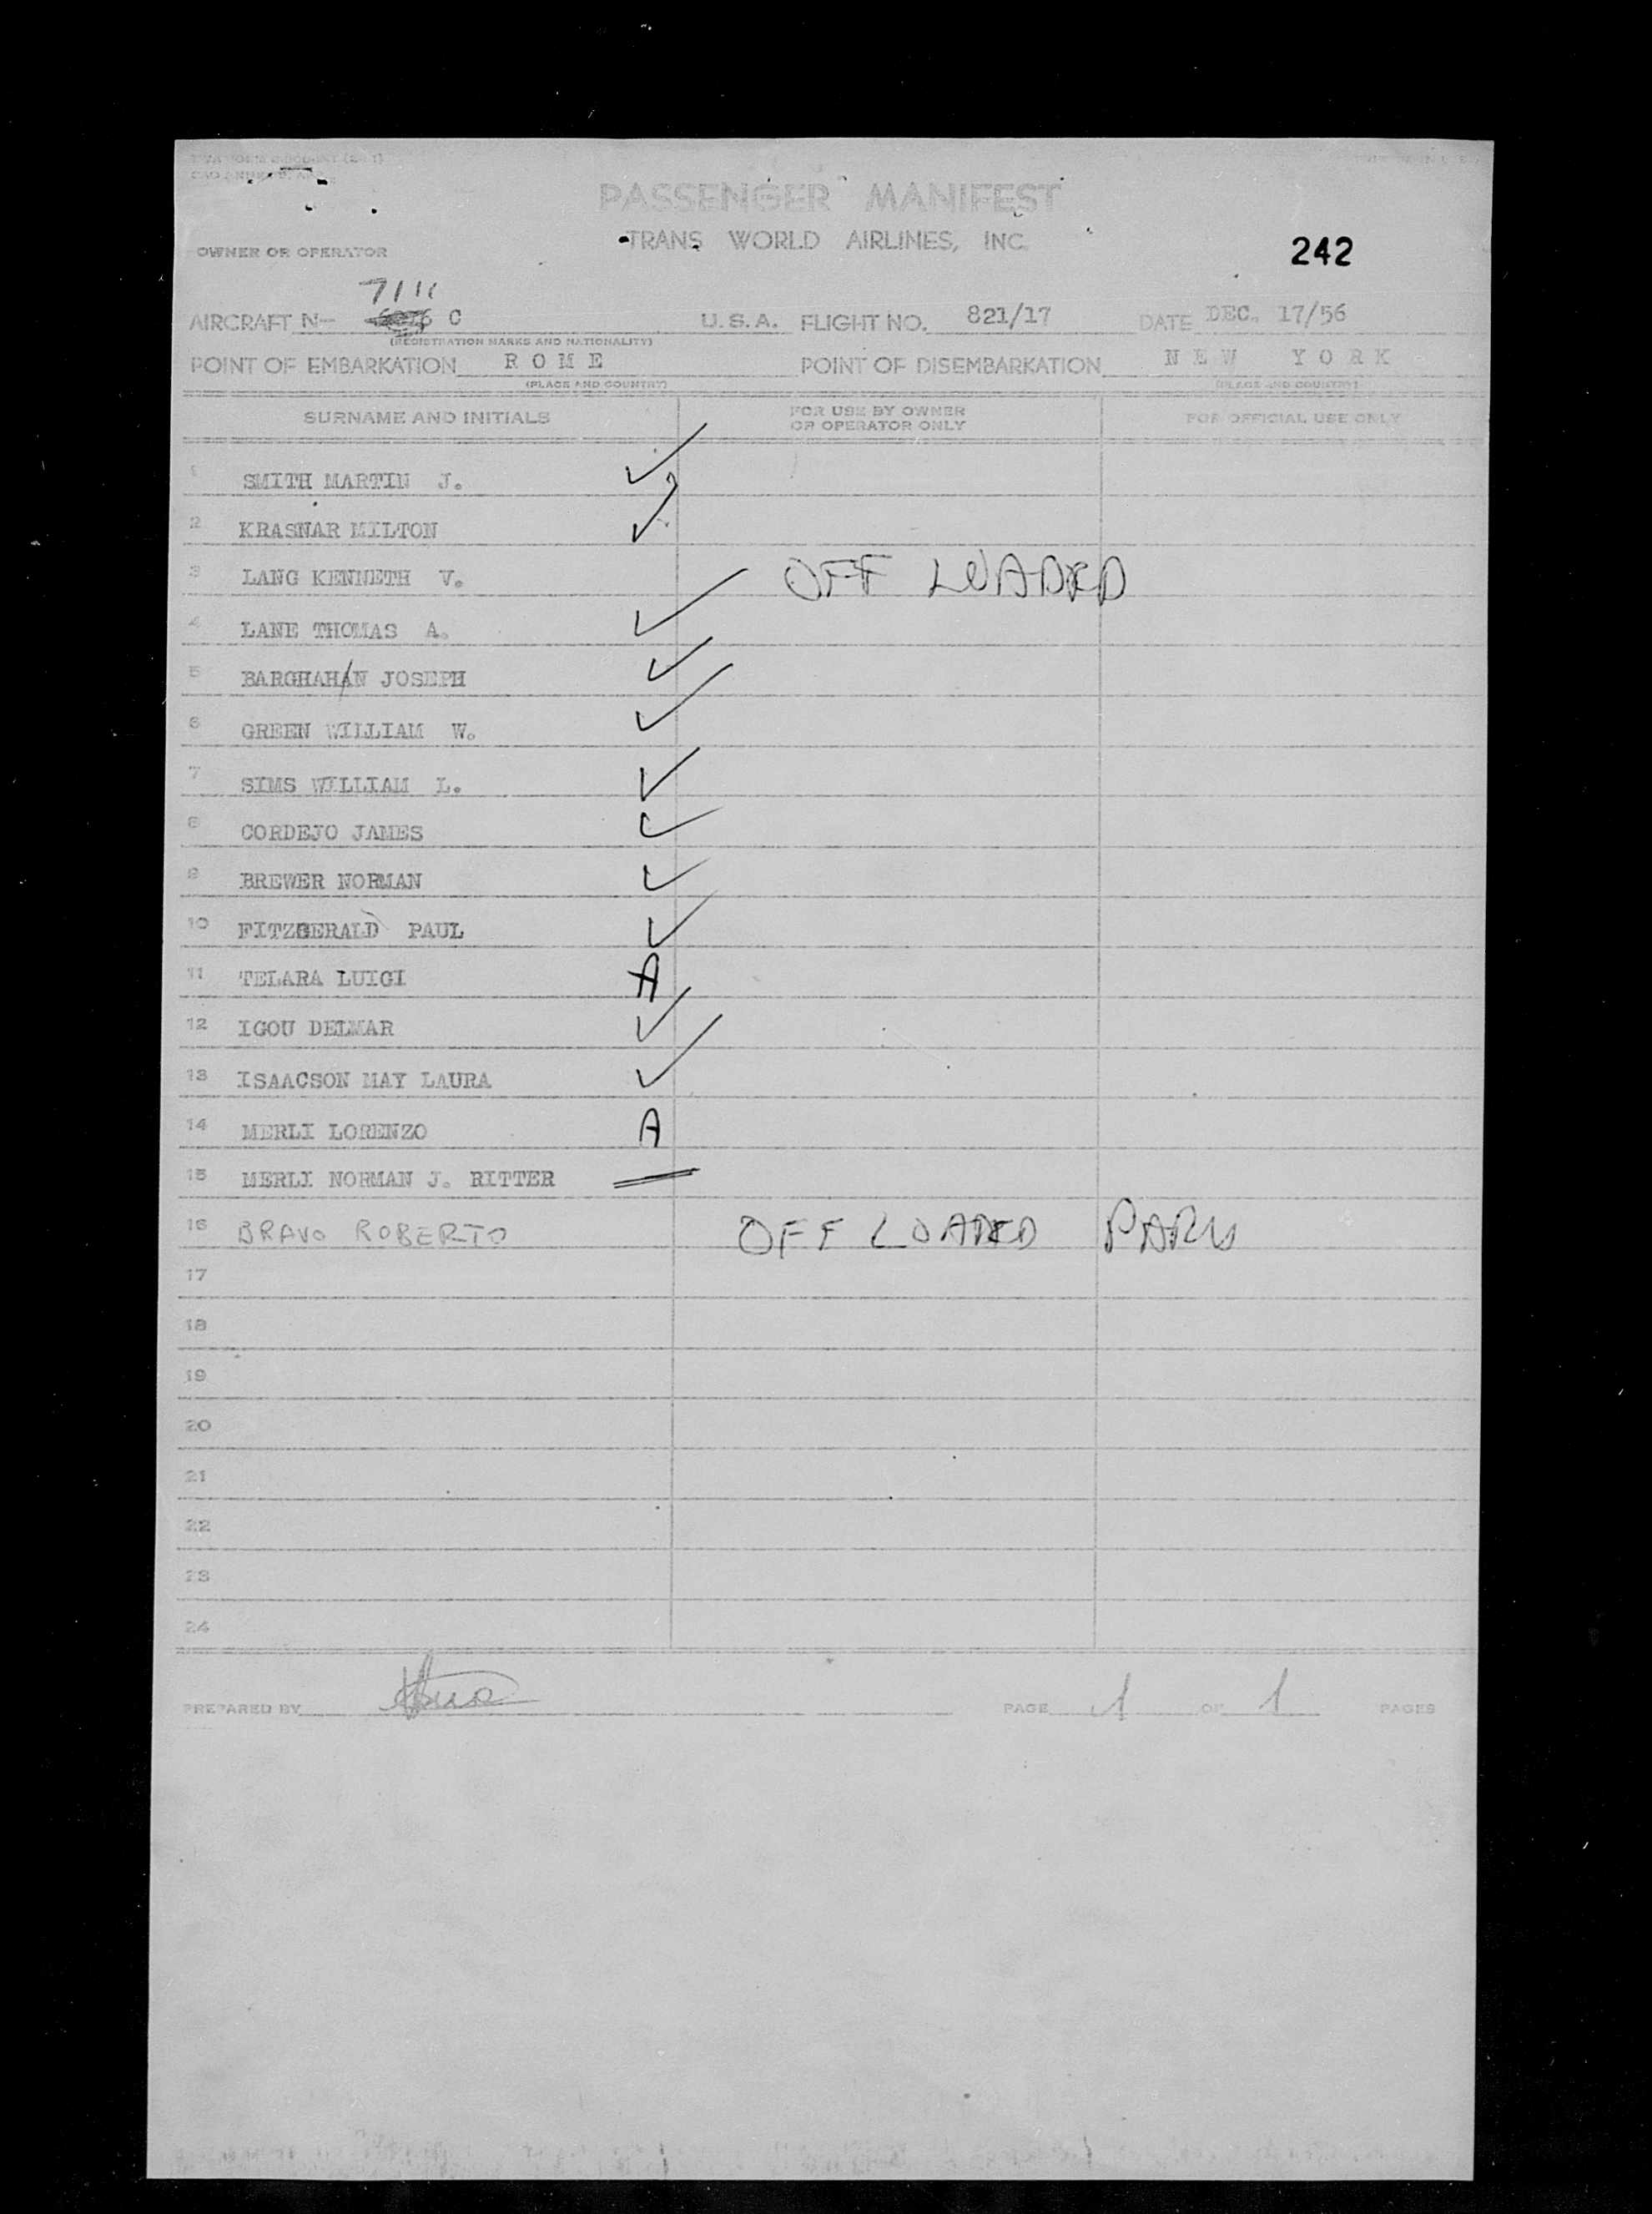 PASSENGER MANIFEST
TRANS WORLD AIRLINES, INC.
242
OWNER OR OPERATOR
7111
AIRCRAFT N- C U.S.A. FLIGHT NO. 821/17 DATE DEC. 17/56
(REGISTRATION MARKS AND NATIONALITY)
POINT OF EMBARKATION ROME POINT OF DISEMBARKATION NEW YORK
(PLACE AND COUNTRY) (PLACE AND COUNTRY)
SURNAME AND INITIALS FOR USE BY OWNER OR OPERATOR ONLY FOR OFFICIAL USE ONLY
1 SMITH MARTIN J. ✓
2 KRASNAR MILTON ✓
3 LANG KENNETH V. OFF LOADED
4 LANE THOMAS A. ✓
5 BARGHAHAN JOSEPH ✓
6 GREEN WILLIAM W. ✓
7 SIMS WILLIAM L. ✓
8 CORDEJO JAMES ✓
9 BREWER NORMAN ✓
10 FITZGERALD PAUL ✓
11 TELARA LUIGI A
12 IGOU DELMAR ✓
13 ISAACSON MAY LAURA ✓
14 MERLI LORENZO A
15 MERLI NORMAN J. RITTER
16 BRAVO ROBERTO OFF LOADED
17
18
19
20
21
22
23
24
PREPARED BY PAGE 1 OF 1 PAGES